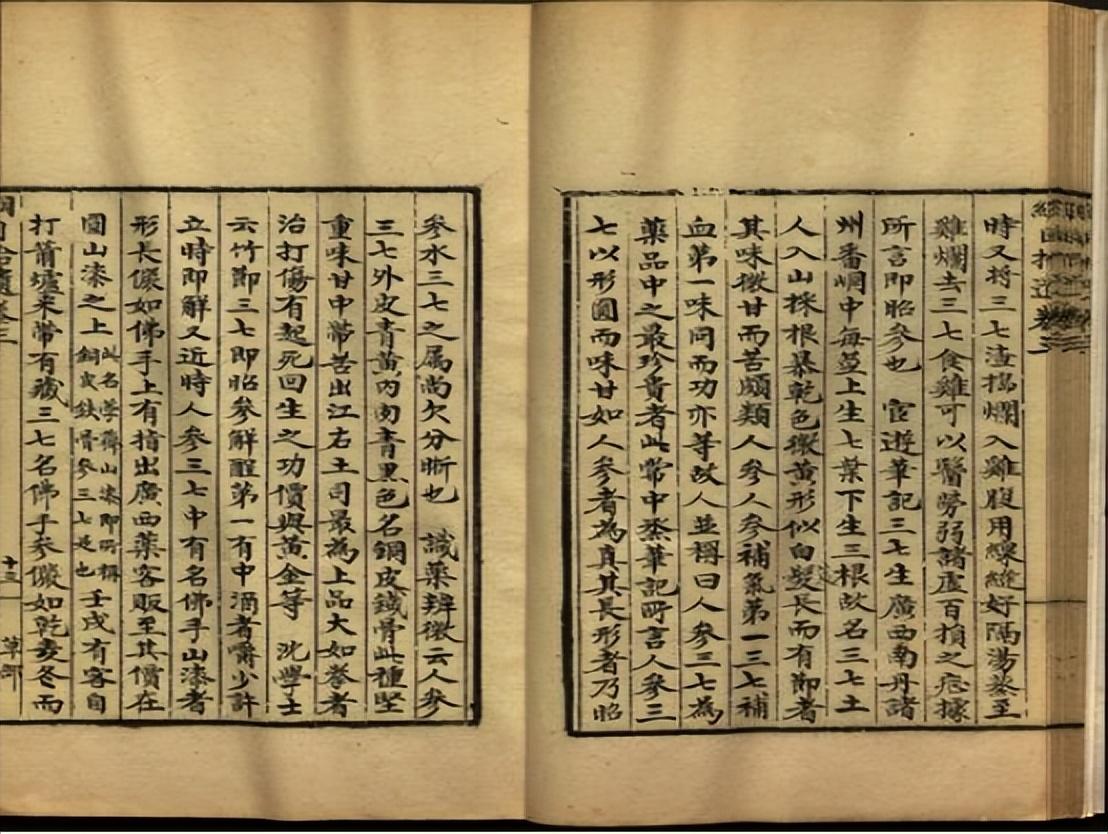 時又將三七渣搗爛入雞腹用線縫好隔湯蒸至
雞爛去三七食雞可以醫勞弱諸虛百損之症據
所言即昭參也 宦遊筆記三七生廣西南丹諸
州番峒中每莖上生七葉下生三根故名三七土
人入山採根暴乾色微黃形似白芨長而有節者
其味微甘而苦頗類人參人參補氣第一三七補
血第一味同而功亦等故人並稱曰人參三七為
藥品中之最珍貴者此常中丞筆記所言人參三
七以形圓而味甘如人參者為真其長形者乃昭
參水三七之屬尚欠分晰也 識藥辨微云人參
三七外皮青黃內肉青黑色名銅皮鐵骨此種堅
重味甘中帶苦出江右土司最為上品大如拳者
治打傷有起死回生之功價與黃金等 沈學士
云竹節三七即昭參解酲第一有中酒者嚼少許
立時即解又近時人參三七中有名佛手山漆者
形長儼如佛手上有指出廣西藥客販至其價在
圓山漆之上此名孛薺山漆即所稱銅皮鉄骨參三七是也壬戌有客自
打箭爐來帶有藏三七名佛手參儼如乾麥冬而
十三
草部